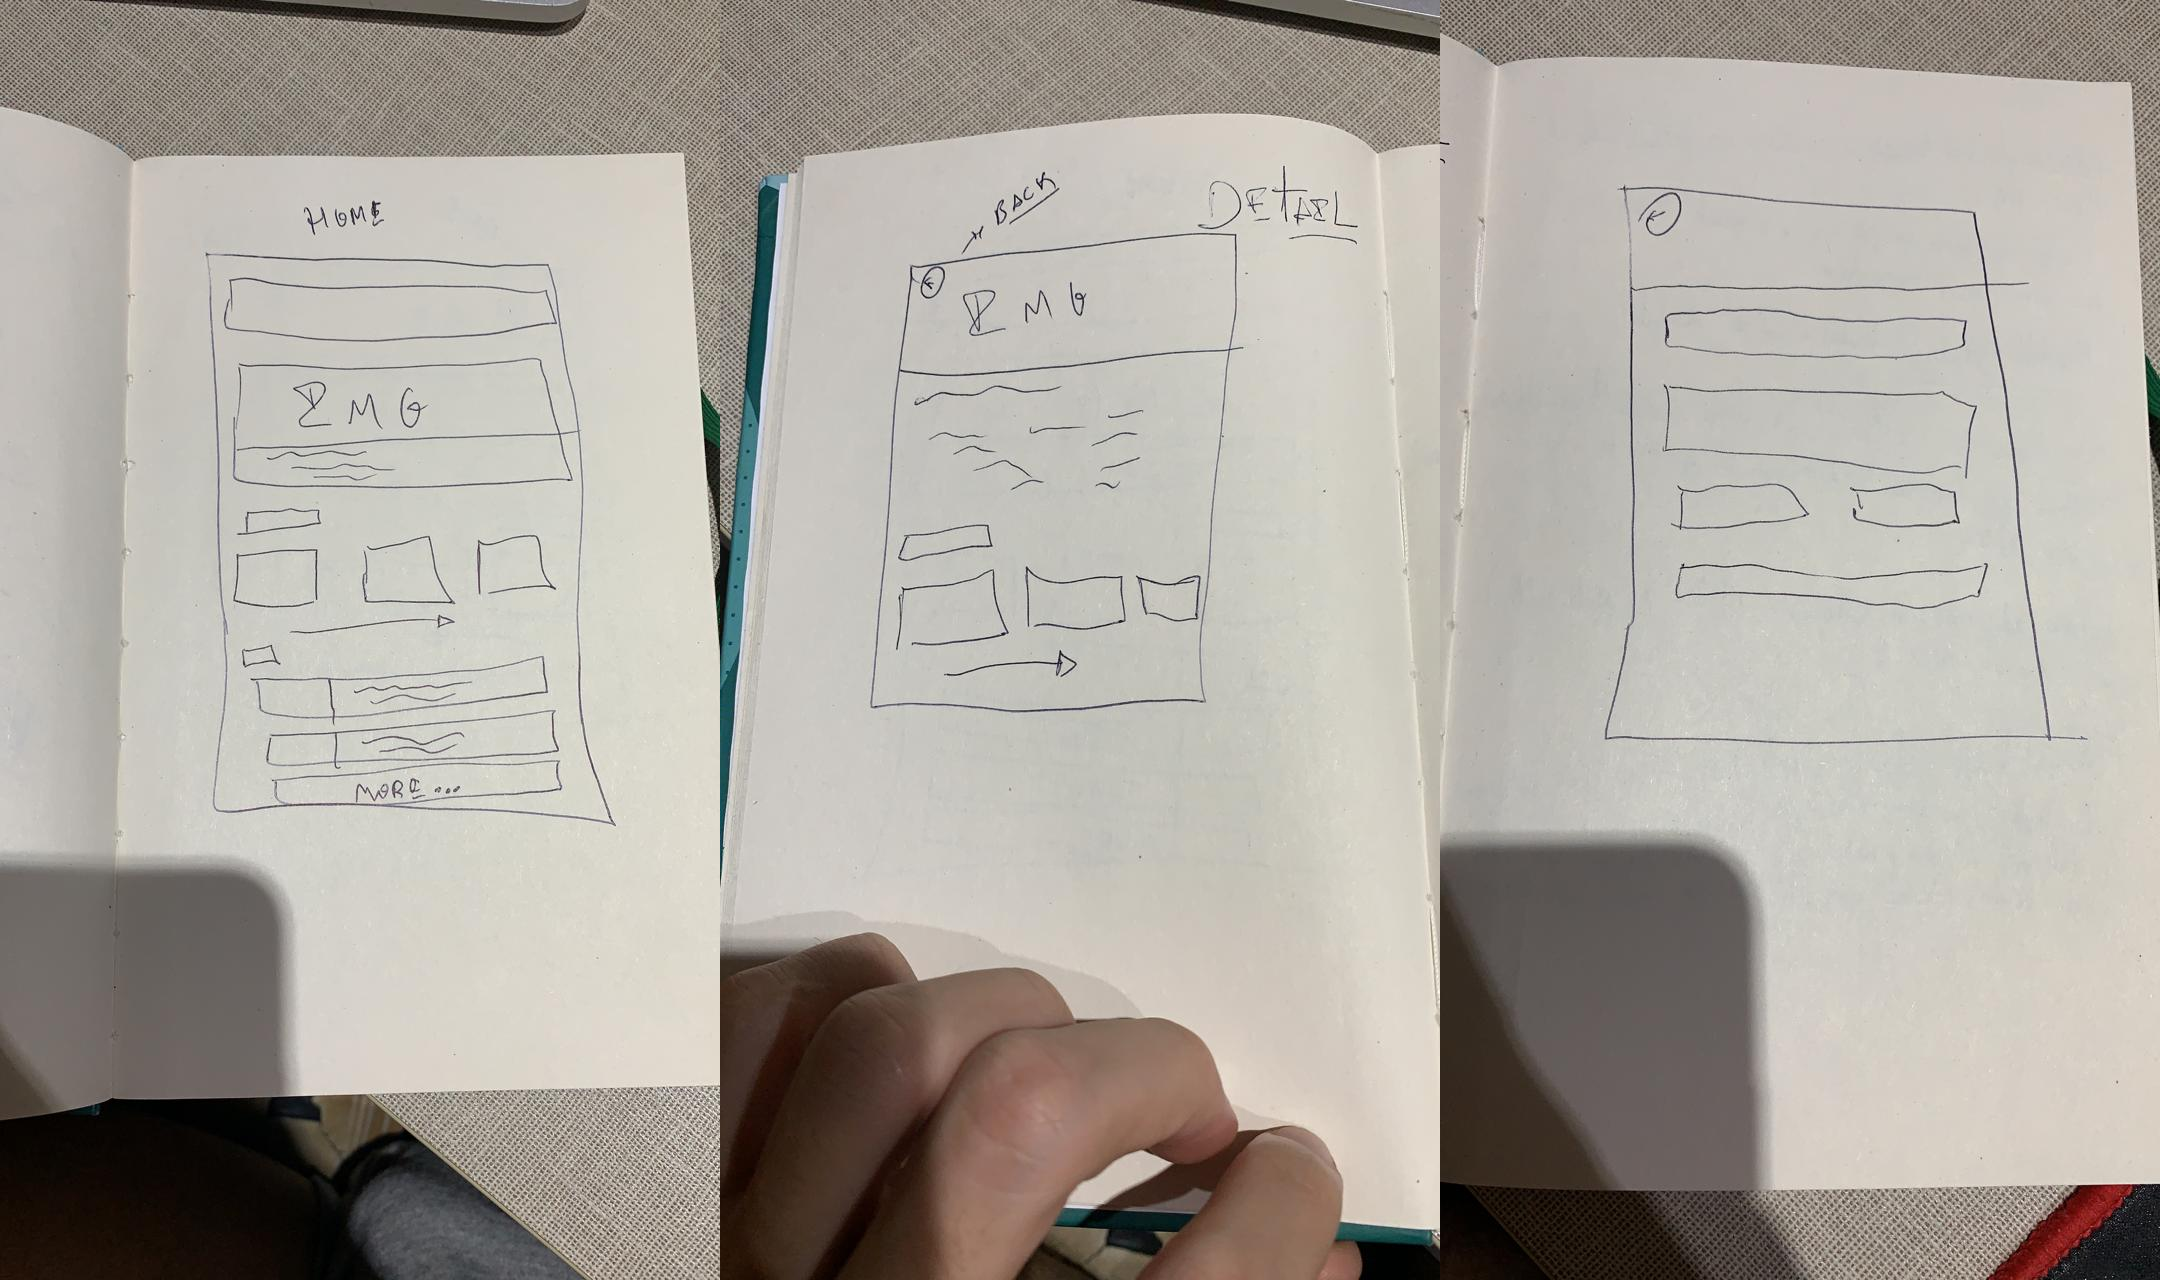 HOME
IMG
MORE...
BACK
DETAIL
IMG